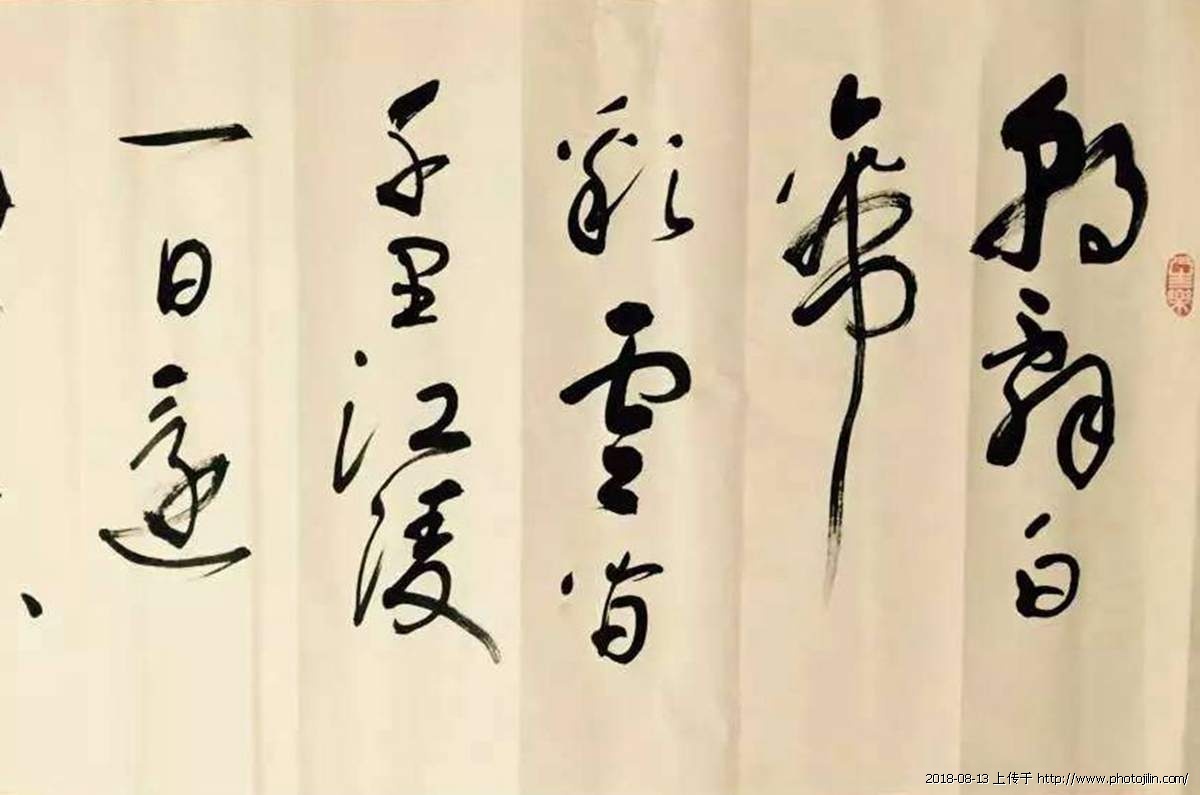 朝辭白
帝
彩雲間
千里江陵
一日還
2018-08-13 上传于 http://www.photojilin.com/